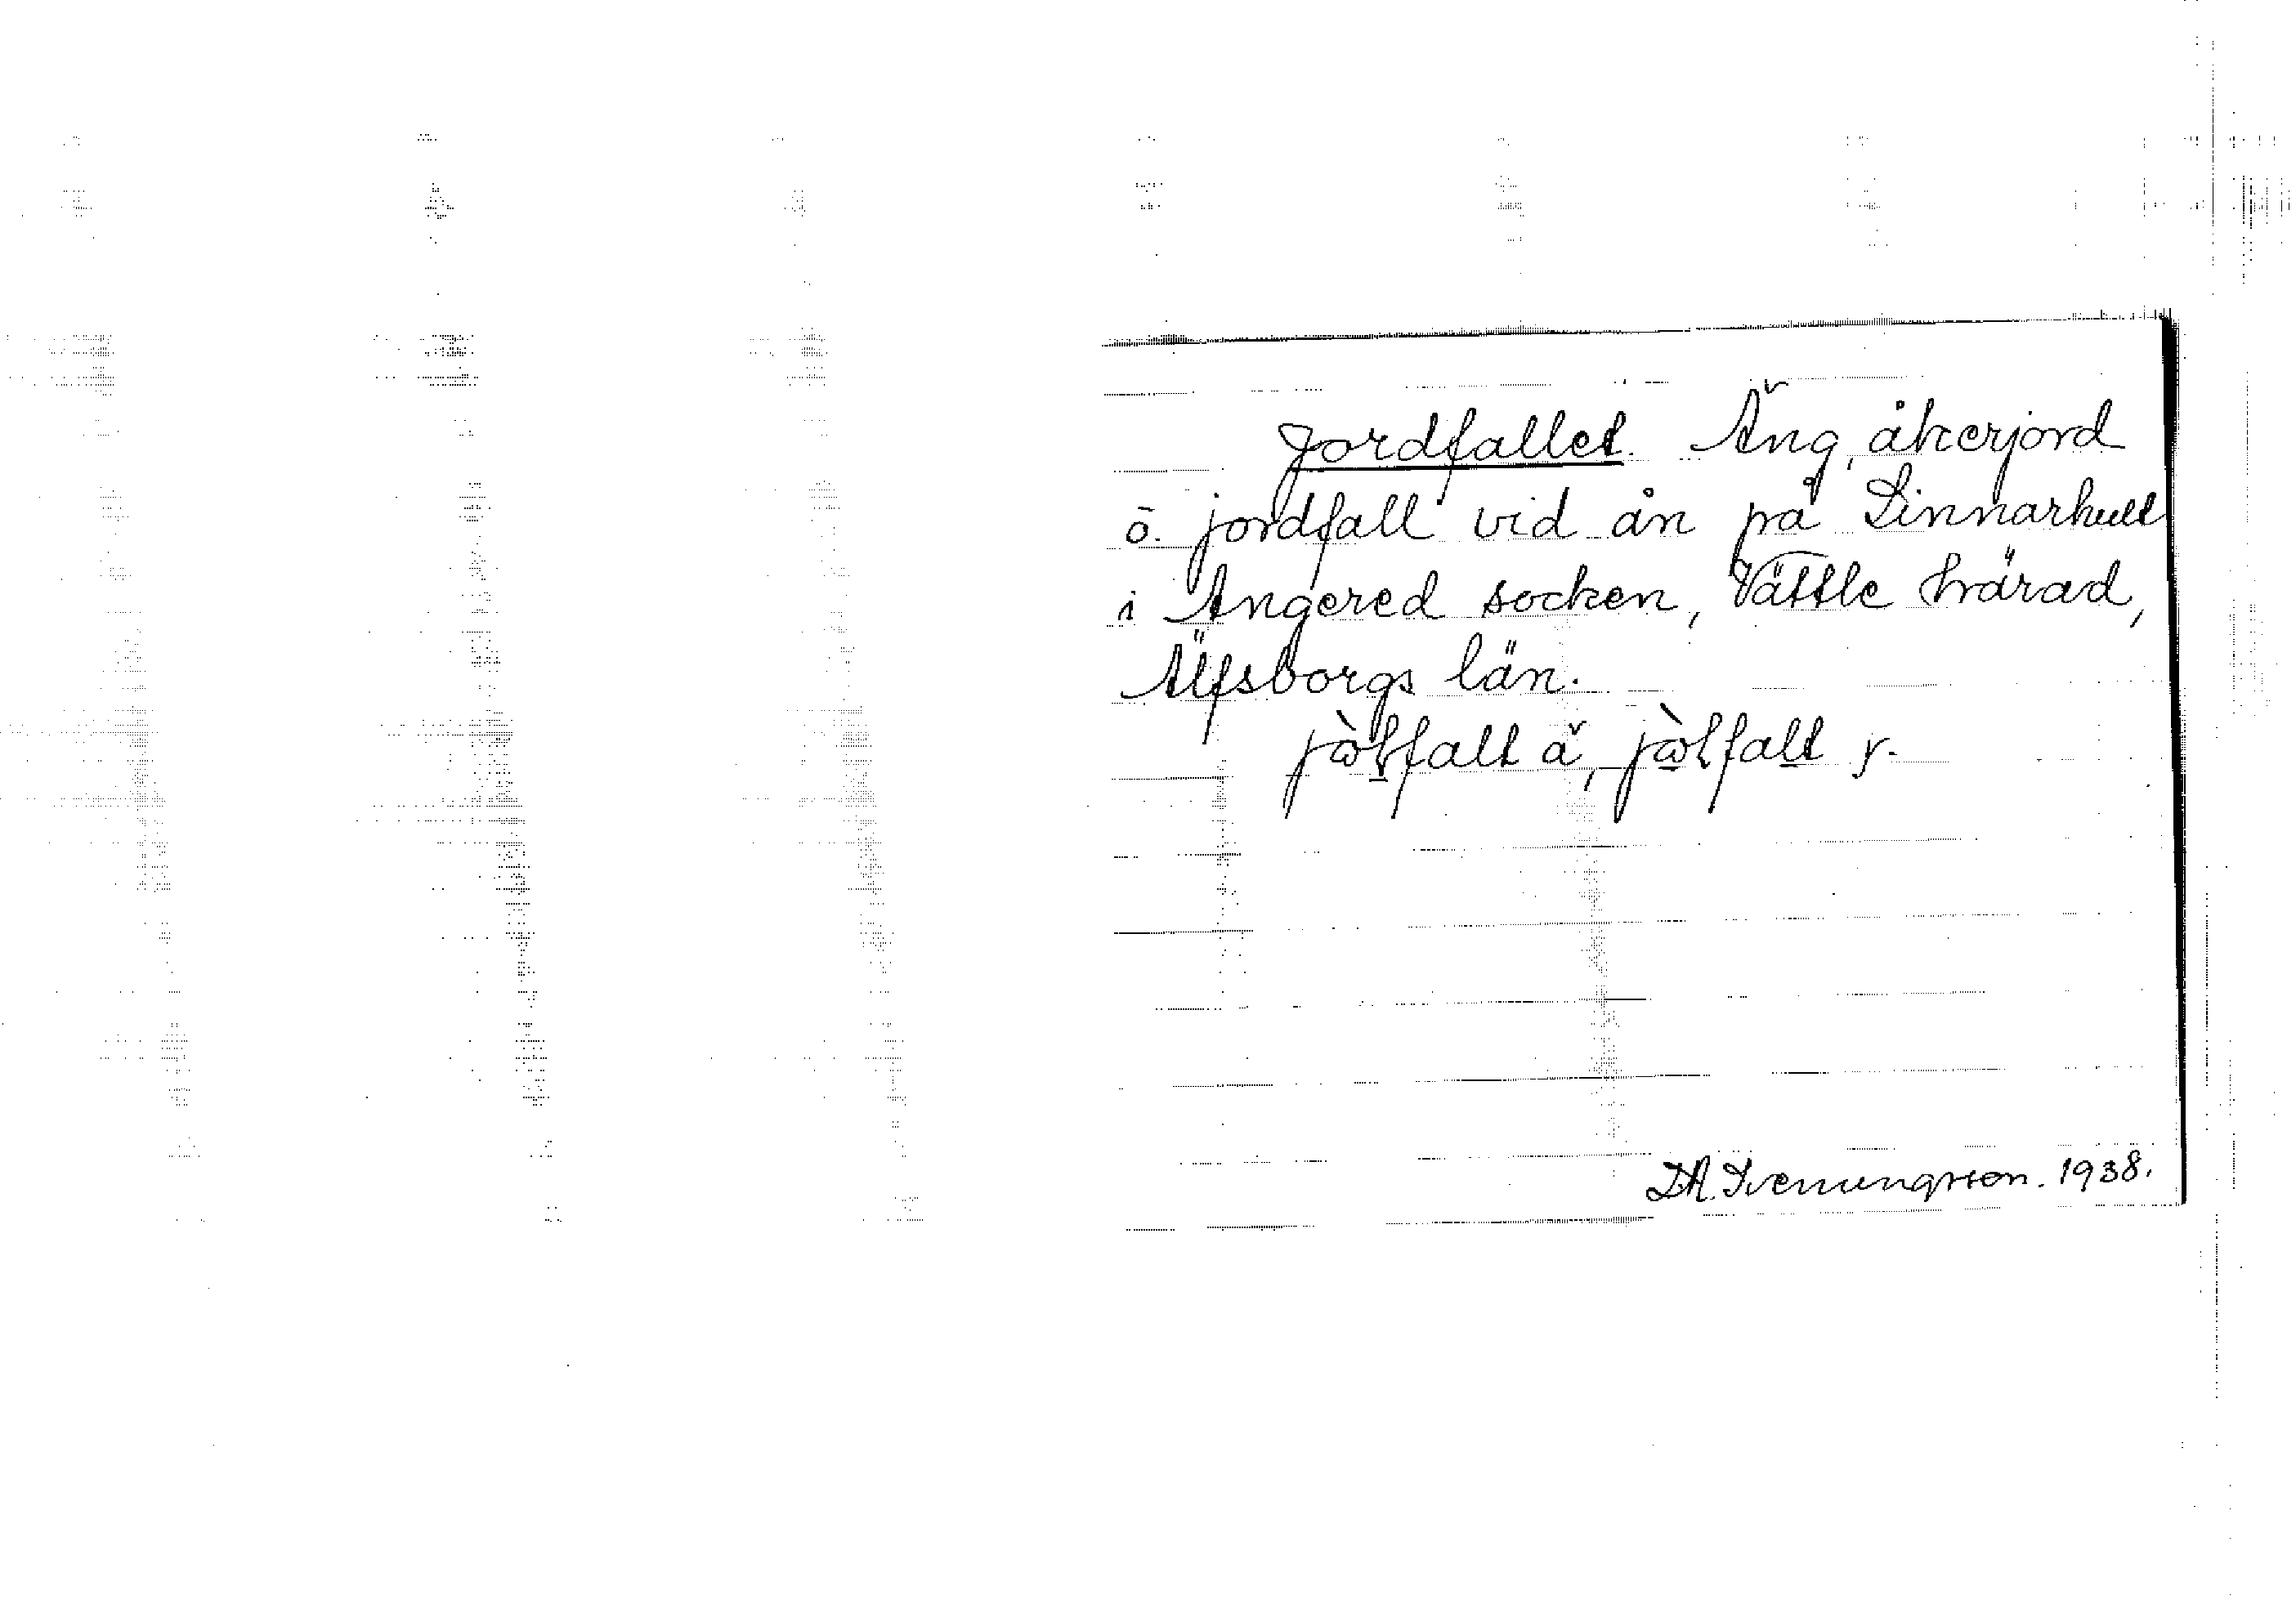 Jordfallet. Äng, åkerjord
ö. jordfall vid ån på Linnarhult
i Angered socken, Vättle härad,
Älfsborgs län.
1938.